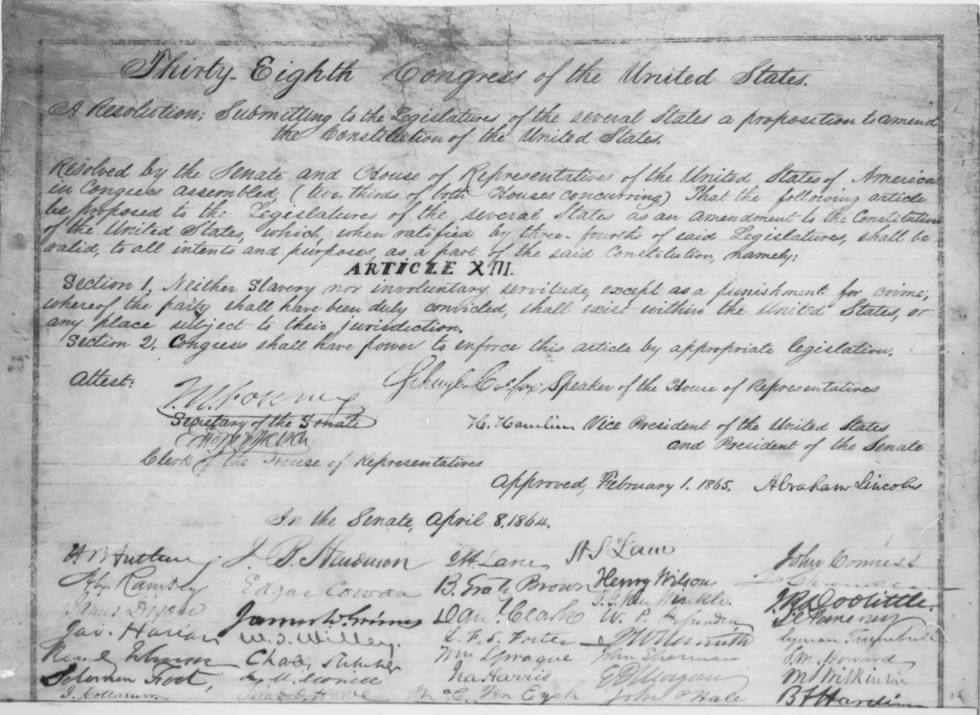 Thirty-Eighth Congress of the United States.
A Resolution; Submitting to the Legislatures of the several States a proposition to amend
the Constitution of the United States.
Resolved by the Senate and House of Representatives of the United States of America
in Congress assembled, (two-thirds of both Houses concurring) That the following article
be proposed to the Legislatures of the several States as an amendment to the Constitution
of the United States, which, when ratified by three-fourths of said Legislatures, shall be
valid, to all intents and purposes, as a part of the said Constitution, namely:
ARTICLE XIII.
Section 1, Neither Slavery nor involuntary servitude, except as a punishment for crime;
whereof the party shall have been duly convicted, shall exist within the United States, or
any place subject to their jurisdiction.
Section 2, Congress shall have power to enforce this article by appropriate legislation.
Attest:
Schuyler Colfax Speaker of the House of Representatives
J.W. Forney
Secretary of the Senate
H. Hamlin Vice President of the United States
and President of the Senate
Clerk of the House of Representatives
Approved, February 1. 1865. Abraham Lincoln
In the Senate, April 8, 1864.
J. B. Henderson J H Lane H S Lane John Conness
Alex Ramsey Edgar Cowan B. Gratz Brown Henry Wilson
James W. Grimes Dan'l Clark J. R. Doolittle.
Jas. Harlan W. T. Willey L. F. S. Foster Lyman Trumbull
Charles Sumner Wm Sprague John Sherman J. M. Howard
Solomon Foot, Ira Harris E D Morgan M S Wilkinson
J. Collamer Timo. O. Howe J. C. Ten Eyck John P Hale B F Harding